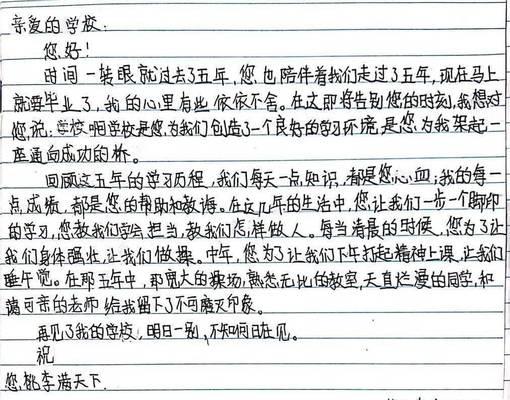 亲爱的学校：
您好！
时间一转眼就过去了五年，您也陪伴着我们走过了五年，现在马上
就要毕业了，我的心里有些依依不舍。在这即将告别您的时刻，我想对
您说：学校啊学校是您为我们创造了一个良好的学习环境，是您为我架起一
座通向成功的桥。
回顾这五年的学习历程，我们每天一点知识，都是您心血；我的每一
点成绩，都是您的帮助和教诲。在这几年的生活中，您让我们一步一个脚印
的学习，您教我们学会担当，教我们怎样做人。每当清晨的时候，您为了让
我们身体强壮，让我们做操。中午，您为了让我们下午打起精神上课，让我们
睡午觉。在那五年中，那宽大的操场，熟悉无比的教室，天真烂漫的同学，和
蔼可亲的老师给我留下了不可磨灭印象。
再见了我的学校，明日一别，不知何日在见。
祝
您桃李满天下.